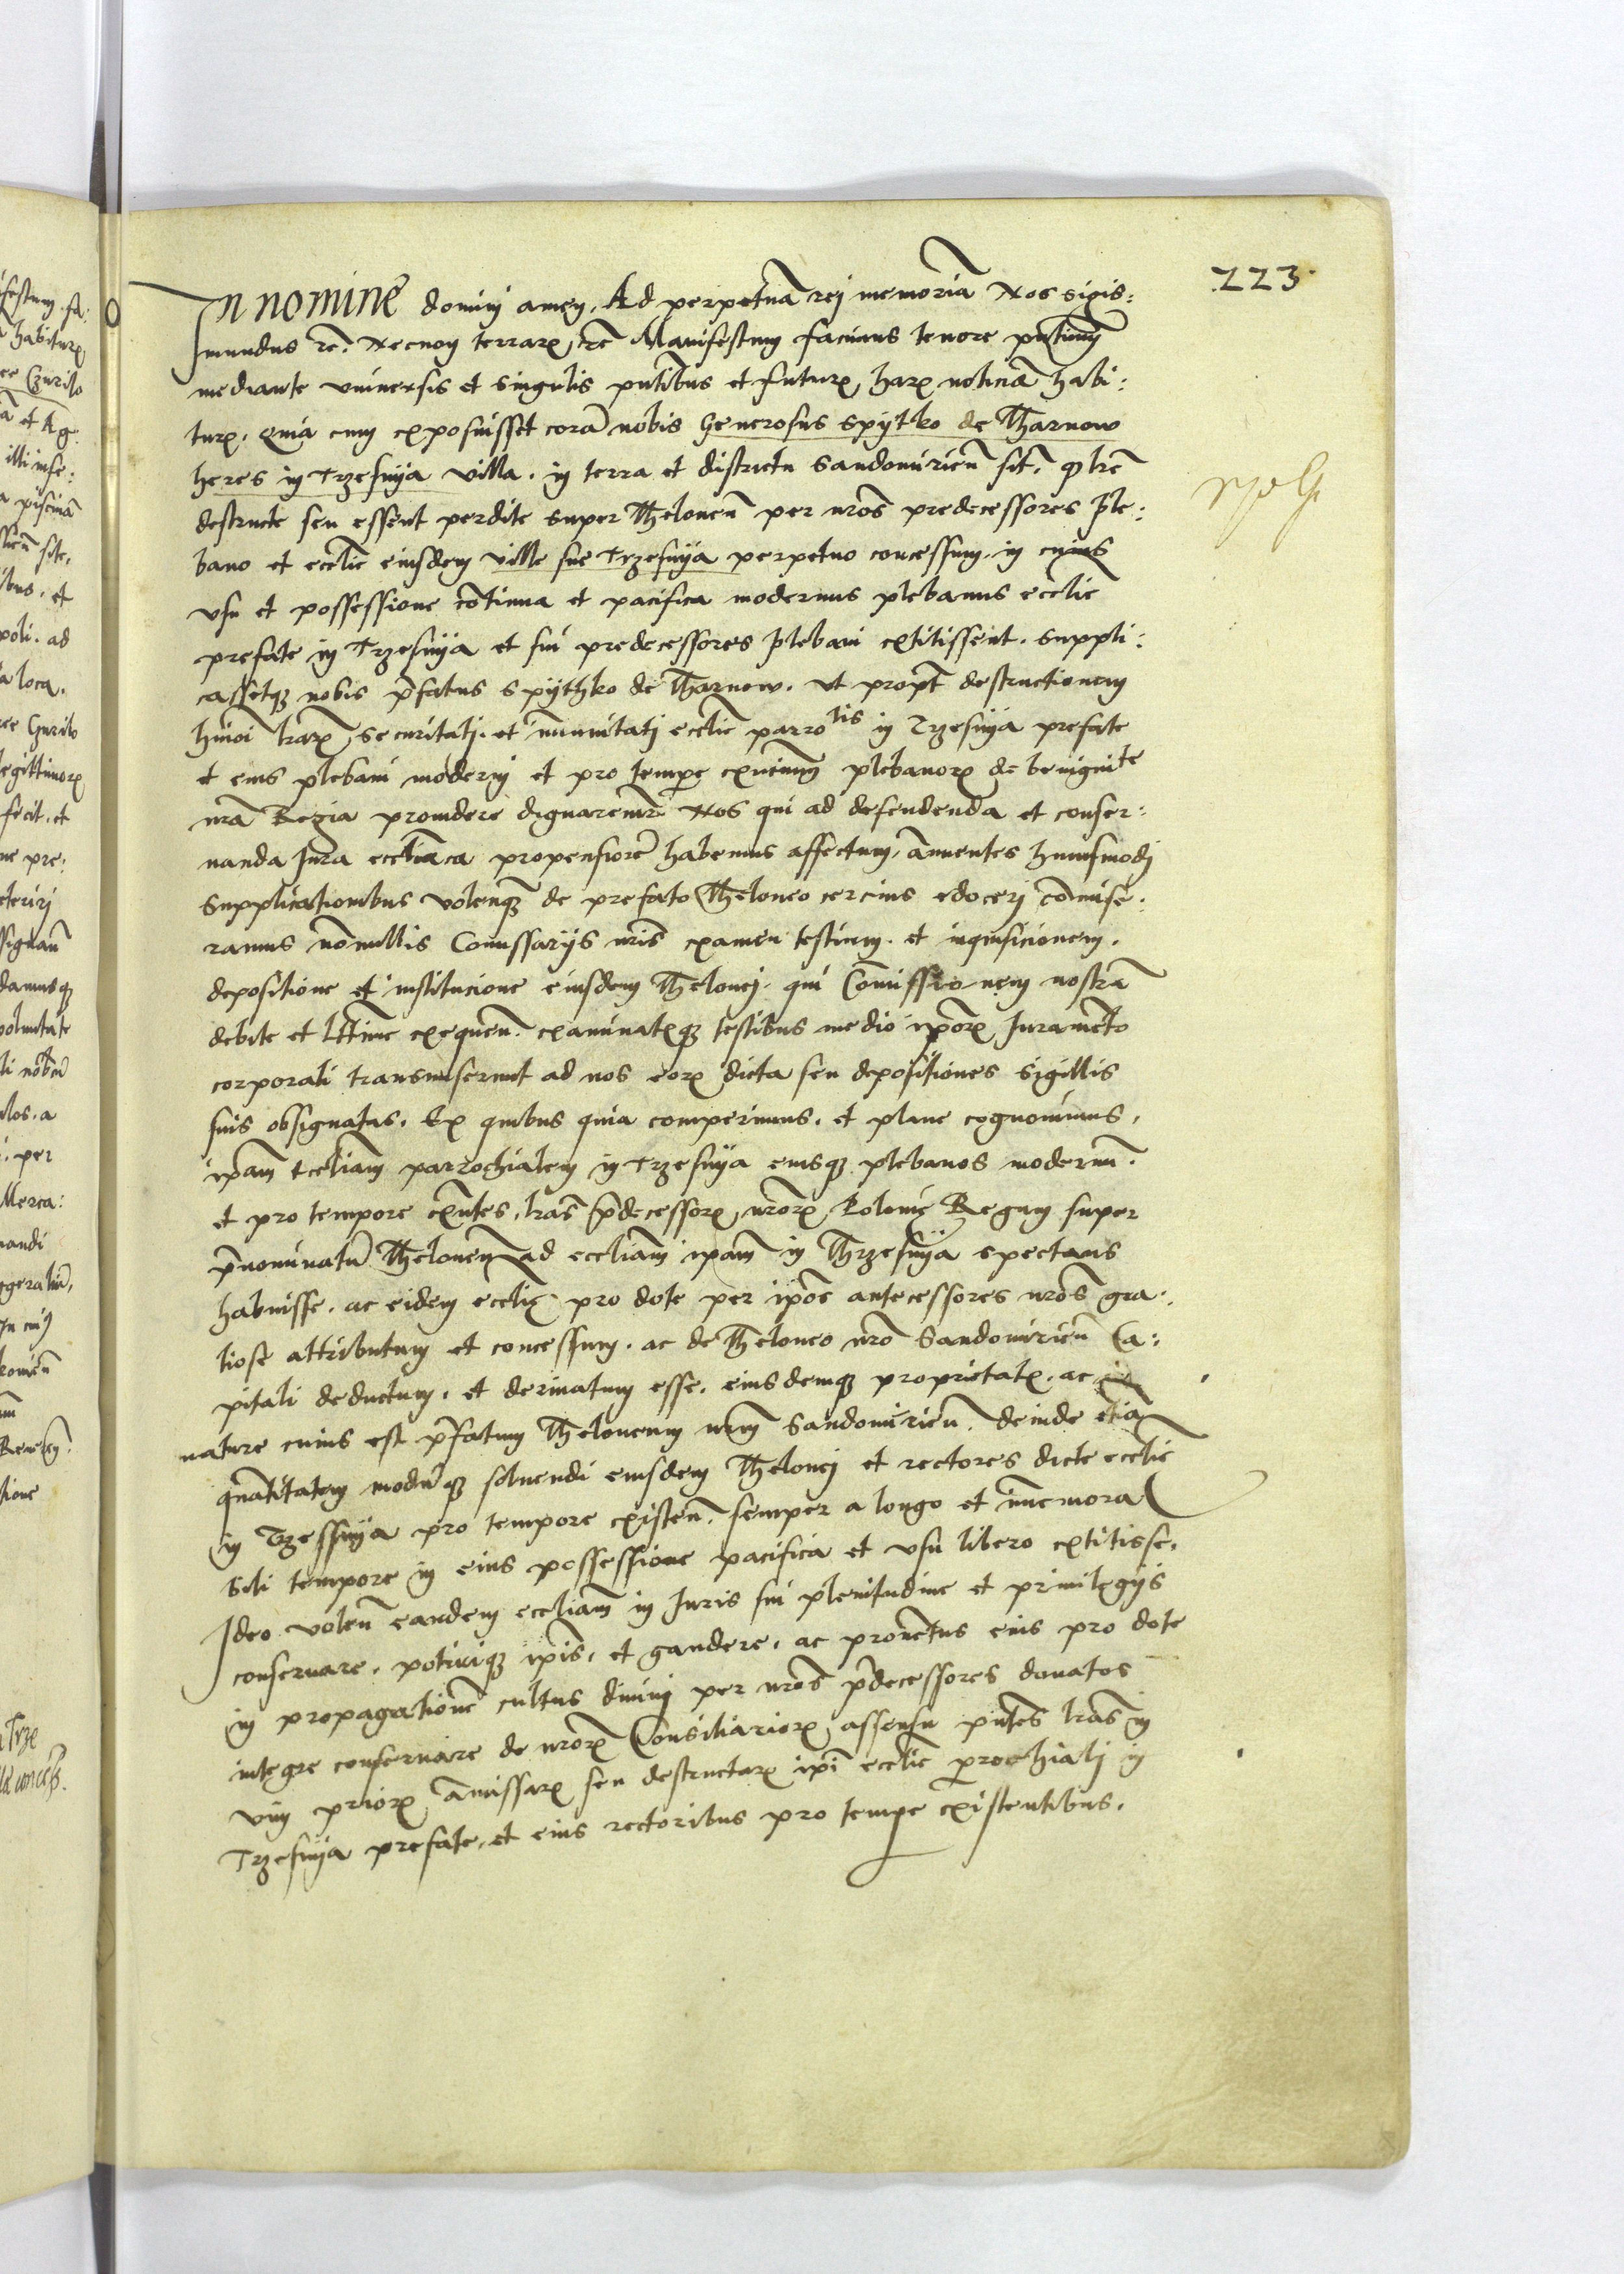 223
In nomine domini amen. Ad perpetuā rei memoriā Nos Sigis:
mundus rc̄. Necnon terrarꝝ rc̄ Manifestum facimus tenore pn̄tium
mediante vniuersis et singulis pn̄tibus et futurꝝ harꝝ noticiā habi:
turꝝ. Quia cum exposuisset corā nobis Generosus Spytko de Tharnow
heres in Trzesnija villa. in terra et districtu Sandomirien̄ sit̄. qd lrē
destructe seu essent perdite super Theloneū per nrōs predecessores ple:
bano et eccl̄ie eiusdem ville sue Trzesnija perpetuo concessum. in cuius
vsu et possessione cōtinua et pacifica modernus plebanus eccl̄ie
prefate in Trzesnija et sui predecessores plebani extitissent. Suppli:
cassetqꝫ nobis p̄fatus Spythko de Tharnow. vt propt̄ destructionem
hmōi lrarꝝ securitati. et īmunitati eccl̄ie parrotis in Trzesnija prefate
et eius plebani moderni et pro tempe exn̄cium plebanorꝝ de benignite
nrā Regia prouidere dignaremr̄ Nos qui ad defendenda et conser:
uanda Iura eccl̄iāca propensiorē habemus affectum, annuentes huiusmodi
supplicationibus volen̄qꝫ de prefato Theloneo cercius edoceri cōmise:
ramus nōnullis Comissarijs nrīs examen testium. et inquisicionem.
depositione et institucione eiusdem Thelonei. qui Cōmissionem nostrā
debite et lt̄time exequen̄. examinatꝭqꝫ testibus medio ipōrꝝ Iuramēto
corporali transmiserunt ad nos eorꝝ dicta seu depositiones sigillis
suis obsignatas. Ex quibus quia comperimus. et plane cognouimus,
ipam eccl̄iam parrochialem in Trzesnija eiusqꝫ plebanos modernū.
et pro tempore exn̄tes, lrās p̄decessorꝝ nrōrꝝ Polonię Regum super
p̄nominatū Theloneum ad eccl̄iam ipam in Thrzesnija spectans
habuisse. ac eidem eccl̄ię pro dote per ipōs antecessores nrōs gra:
tiose attributum et concessum. ac de Theloneo nrō Sandomirien̄ Ca:
pitali deductum. et deriuatum esse. eiusdemqꝫ proprietatꝭ. ac
nature cuius est p̄fatum Theloneum nrm̄ Sandomirien̄. deinde etiā
quātitatem modūqꝫ soluendi eiusdem Thelonei et rectores dicte eccl̄ie
in Trzessnija pro tempore existen̄. semper a longo et īmemora
bili tempore in eius possessione pacifica et vsu libero extitisse.
Ideo volen̄ eandem eccl̄iam in Iuris sui plenitudine et priuilegijs
conseruare. potiriqꝫ ipīs. et gaudere. ac prouētus eius pro dote
in propagationē cultus diuini per nrōs p̄decessores donatos
integre conseruare de nrōrꝝ Consiliariorꝝ assensu pn̄tes lrās in
vim priorꝝ āmissarꝝ seu destructarꝝ ipī eccl̄ie parochiali in
Trzesnija prefate. et eius rectoribus pro tempe existentibus.